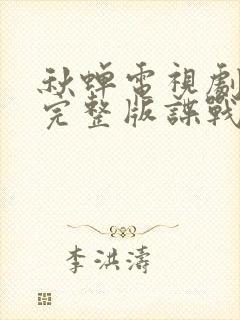 秋蟬電視劇
完整版諜戰
李洪濤